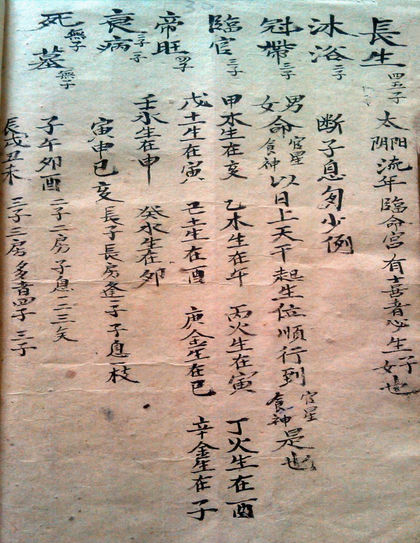 長生 四五子 太陰陽流年臨命宮有喜者必生子女也
沐浴 二子 断子息多少例
冠帶 三子 男女命官星食神以日上天干起生位順行到官星食神是也
臨官 三子 甲木生在亥 乙木生在午 丙火生在寅 丁火生在酉
戊土生在寅 己土生在酉 庚金生在巳 辛金生在子
帝旺 四子 壬水生在申 癸水生在卯
衰病 三子 寅申巳亥 長子長房 子子息一枝
死 無子 墓 無子 子午卯酉 二子二房子息二三矣
辰戌丑未 三子三房多者四子三子